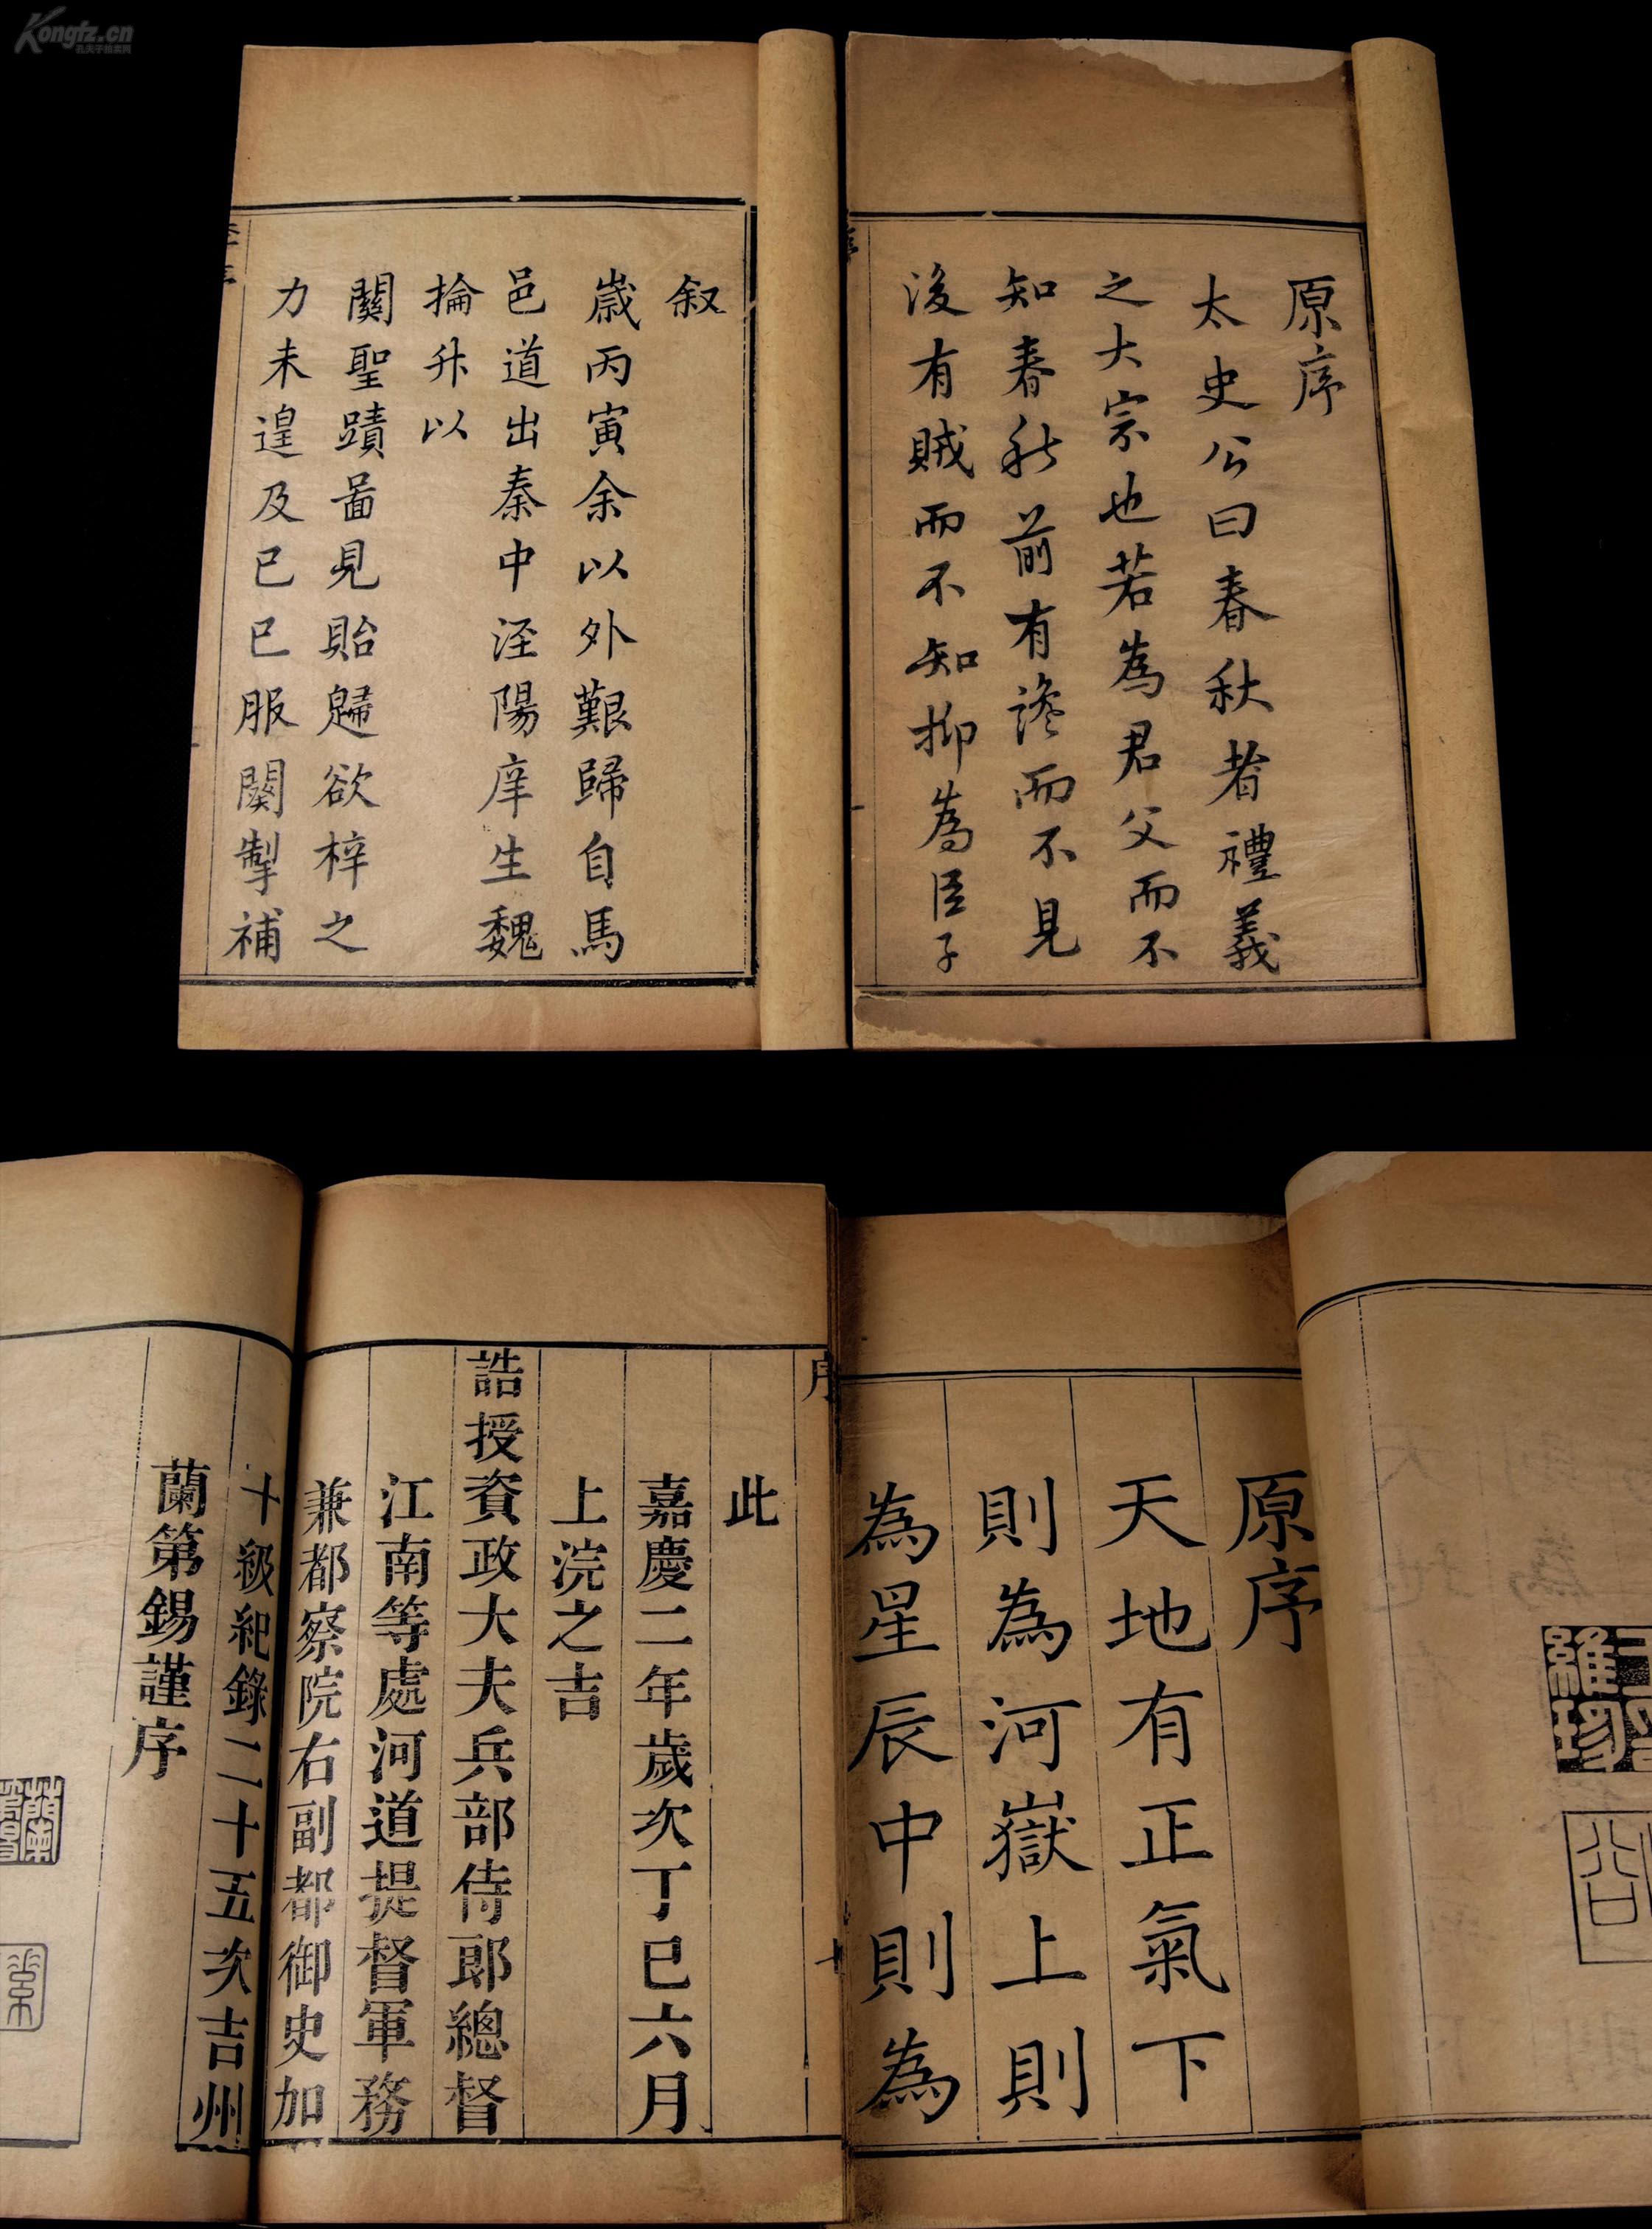 Kongfz.cn
孔夫子拍卖网
原序
太史公曰春秋者禮義
之大宗也若為君父而不
知春秋前有讒而不見
後有賊而不知抑為臣子
叙
歲丙寅余以外艱歸自馬
邑道出秦中涇陽庠生魏
掄升以
關聖蹟啚見貽歸欲梓之
力未遑及己巳服闋掣補
原序
天地有正氣下
則為河嶽上則
為星辰中則為
序
此
嘉慶二年歲次丁巳六月
上浣之吉
誥授資政大夫兵部侍郎總督
江南等處河道提督軍務
兼都察院右副都御史加
十級紀錄二十五次吉州
蘭第錫謹序